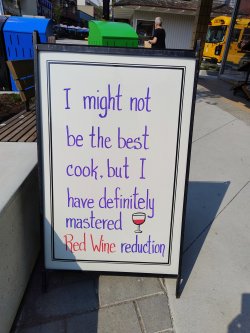 I might not
be the best
cook, but I
have definitely
mastered
Red Wine reduction